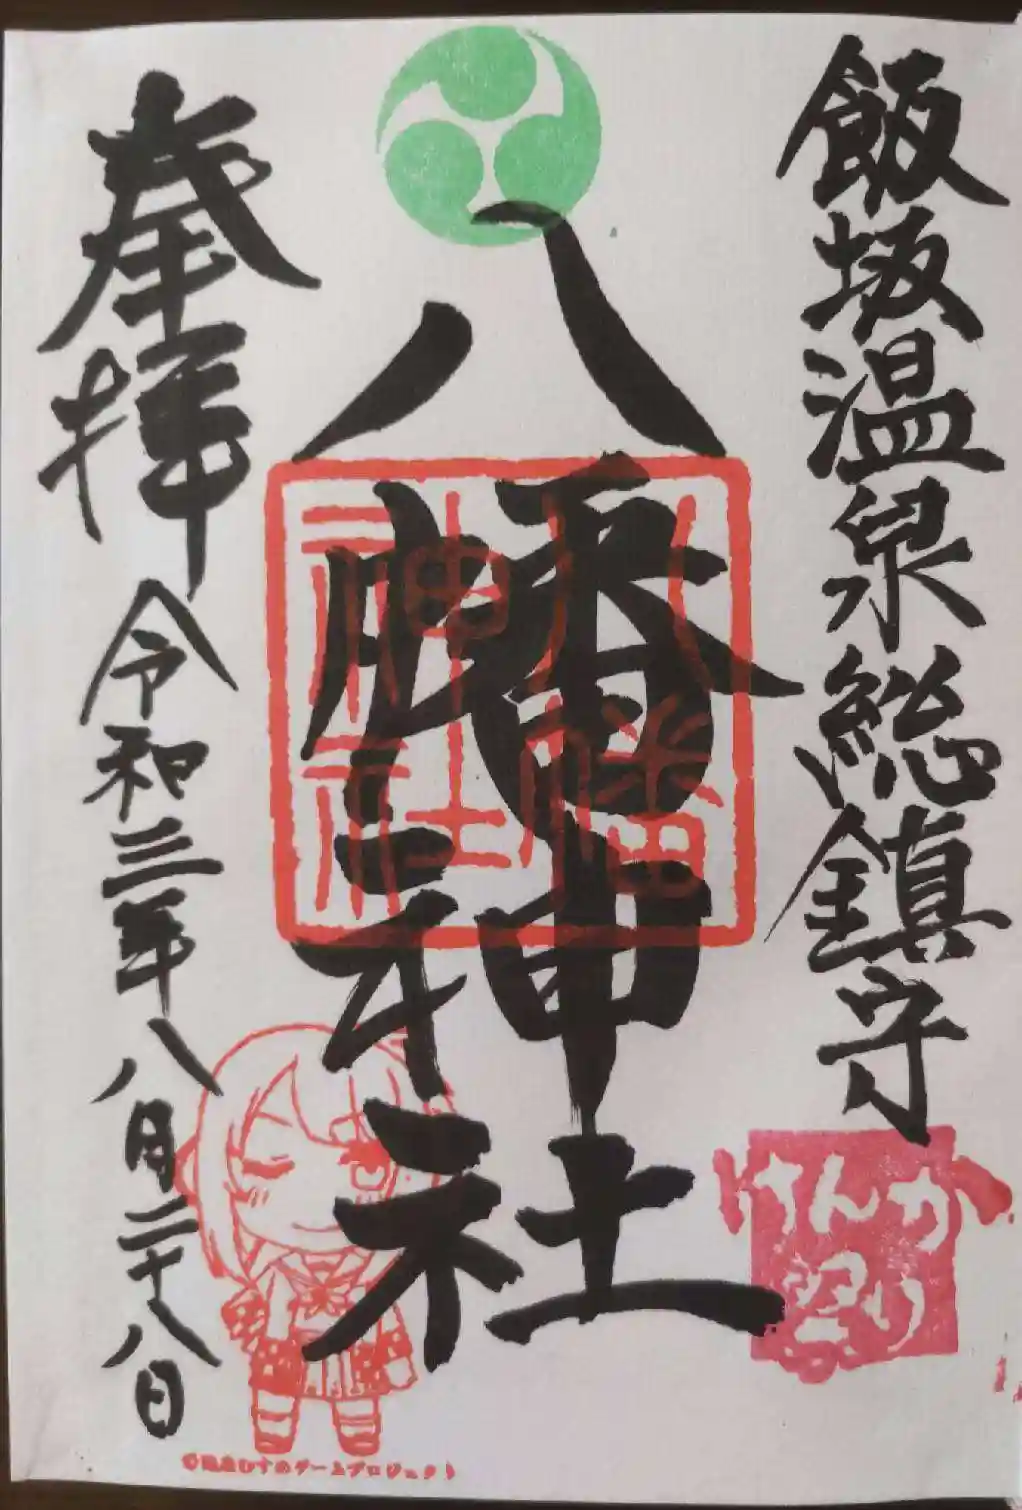 飯坂温泉総鎮守
八幡神社
奉拝
令和三年八月二十八日
八幡
神社
けんか
祭り
©温泉むすめゲームプロジェクト